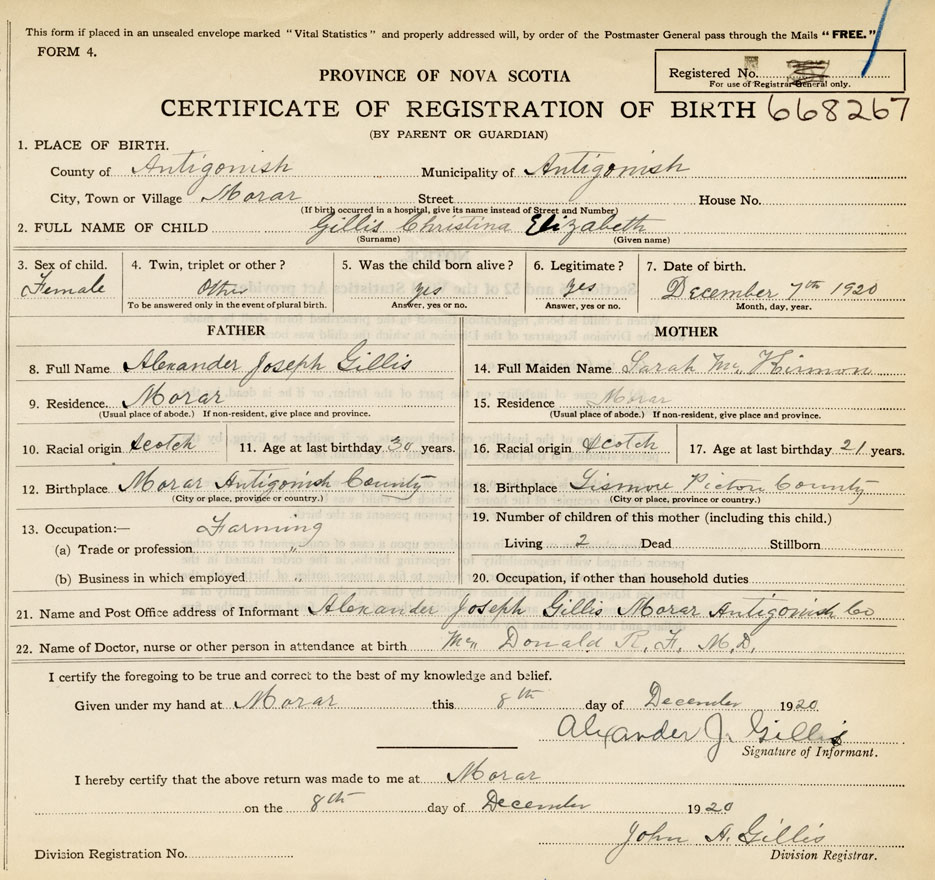 This form if placed in an unsealed envelope marked "Vital Statistics" and properly addressed will, by order of the Postmaster General pass through the Mails "FREE."
FORM 4.
Registered No.
For use of Registrar General only.
PROVINCE OF NOVA SCOTIA
CERTIFICATE OF REGISTRATION OF BIRTH 668267
(BY PARENT OR GUARDIAN)
1. PLACE OF BIRTH.
County of Antigonish Municipality of Antigonish
City, Town or Village Morar Street House No.
(If birth occurred in a hospital, give its name instead of Street and Number)
2. FULL NAME OF CHILD Gillis Christina Elizabeth
(Surname) (Given name)
3. Sex of child. 4. Twin, triplet or other? 5. Was the child born alive? 6. Legitimate? 7. Date of birth.
Female Other yes yes December 7th 1920
To be answered only in the event of plural birth. Answer, yes or no. Answer, yes or no. Month, day, year.
FATHER MOTHER
8. Full Name Alexander Joseph Gillis 14. Full Maiden Name Sarah Mc Kinnon
9. Residence. Morar 15. Residence Morar
(Usual place of abode.) If non-resident, give place and province. (Usual place of abode.) If non-resident, give place and province.
10. Racial origin Scotch 11. Age at last birthday 30 years. 16. Racial origin Scotch 17. Age at last birthday 21 years.
12. Birthplace Morar Antigonish County 18. Birthplace Lismore Pictou County
(City or place, province or country.) (City or place, province or country.)
13. Occupation:— Farming 19. Number of children of this mother (including this child.)
(a) Trade or profession " Living 2 Dead Stillborn
(b) Business in which employed 20. Occupation, if other than household duties
21. Name and Post Office address of Informant Alexander Joseph Gillis Morar Antigonish Co
22. Name of Doctor, nurse or other person in attendance at birth Mc Donald R. F. M.D.
I certify the foregoing to be true and correct to the best of my knowledge and belief.
Given under my hand at Morar this 8th day of December 1920.
Alexander J. Gillis
Signature of Informant.
I hereby certify that the above return was made to me at Morar
on the 8th day of December 1920
John A. Gillis
Division Registration No. Division Registrar.